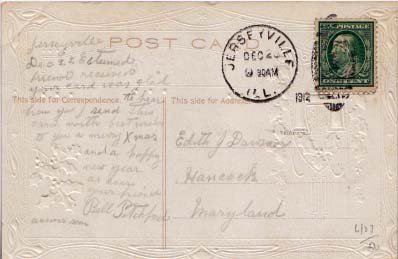 Jerseyville
POST CARD
Dec 22 Esteemed
friend received
your card was glad
to hear
from you I send this
card with best wishes
to you a merry Xmas
and a happy
new year
as ever
your friend
Bell
answer soon
This side for Correspondence.
This side for Address.
JERSEYVILLE
DEC 23
9 30AM
ILL.
1912
ONE CENT
Edith J Davison
Hancock
Maryland